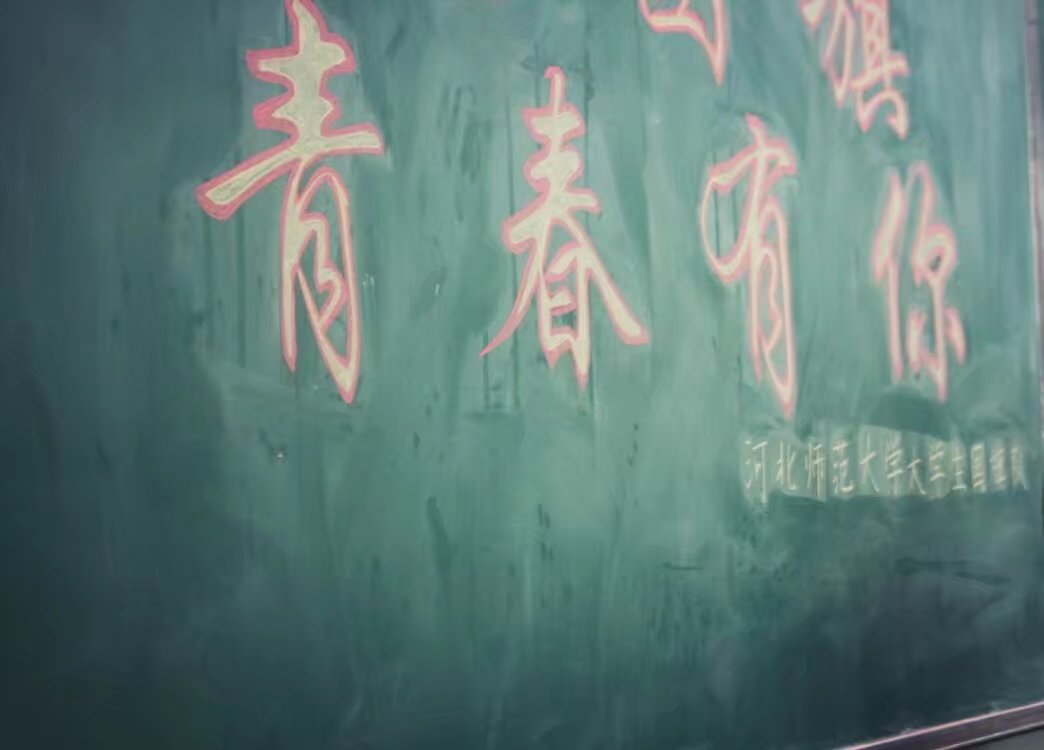 旗
青春有你
河北师范大学大学生